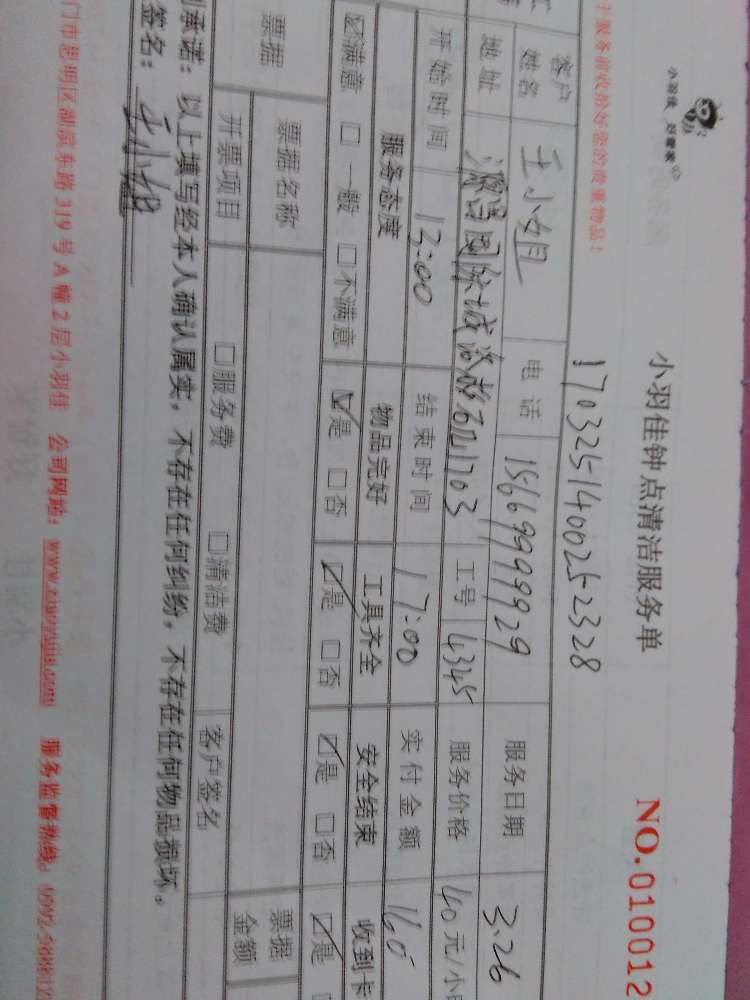 小羽佳 好管家
小羽佳钟点清洁服务单 NO.010012
170325-140025-2328
服务前收拾好您的贵重物品!
客户姓名 王小姐 电话 服务日期 3.26
地址 源昌国际城 1703 工号 4345 服务价格 40元/小
开始时间 13:00 结束时间 17:00 实付金额 160
服务态度 物品完好 工具齐全 安全结束 收到卡
☑满意 □一般 □不满意 ☑是 □否 ☑是 □否 ☑是 □否 ☑是
票据 票据名称 票据金额
开票项目 □服务费 □清洁费 客户签名
承诺:以上填写经本人确认属实,不存在任何纠纷,不存在任何物品损坏。
签名:王小姐
门市思明区湖滨东路319号A幢2层小羽佳 公司网站:www.xiaoyujia.com 服务监督热线:0592-